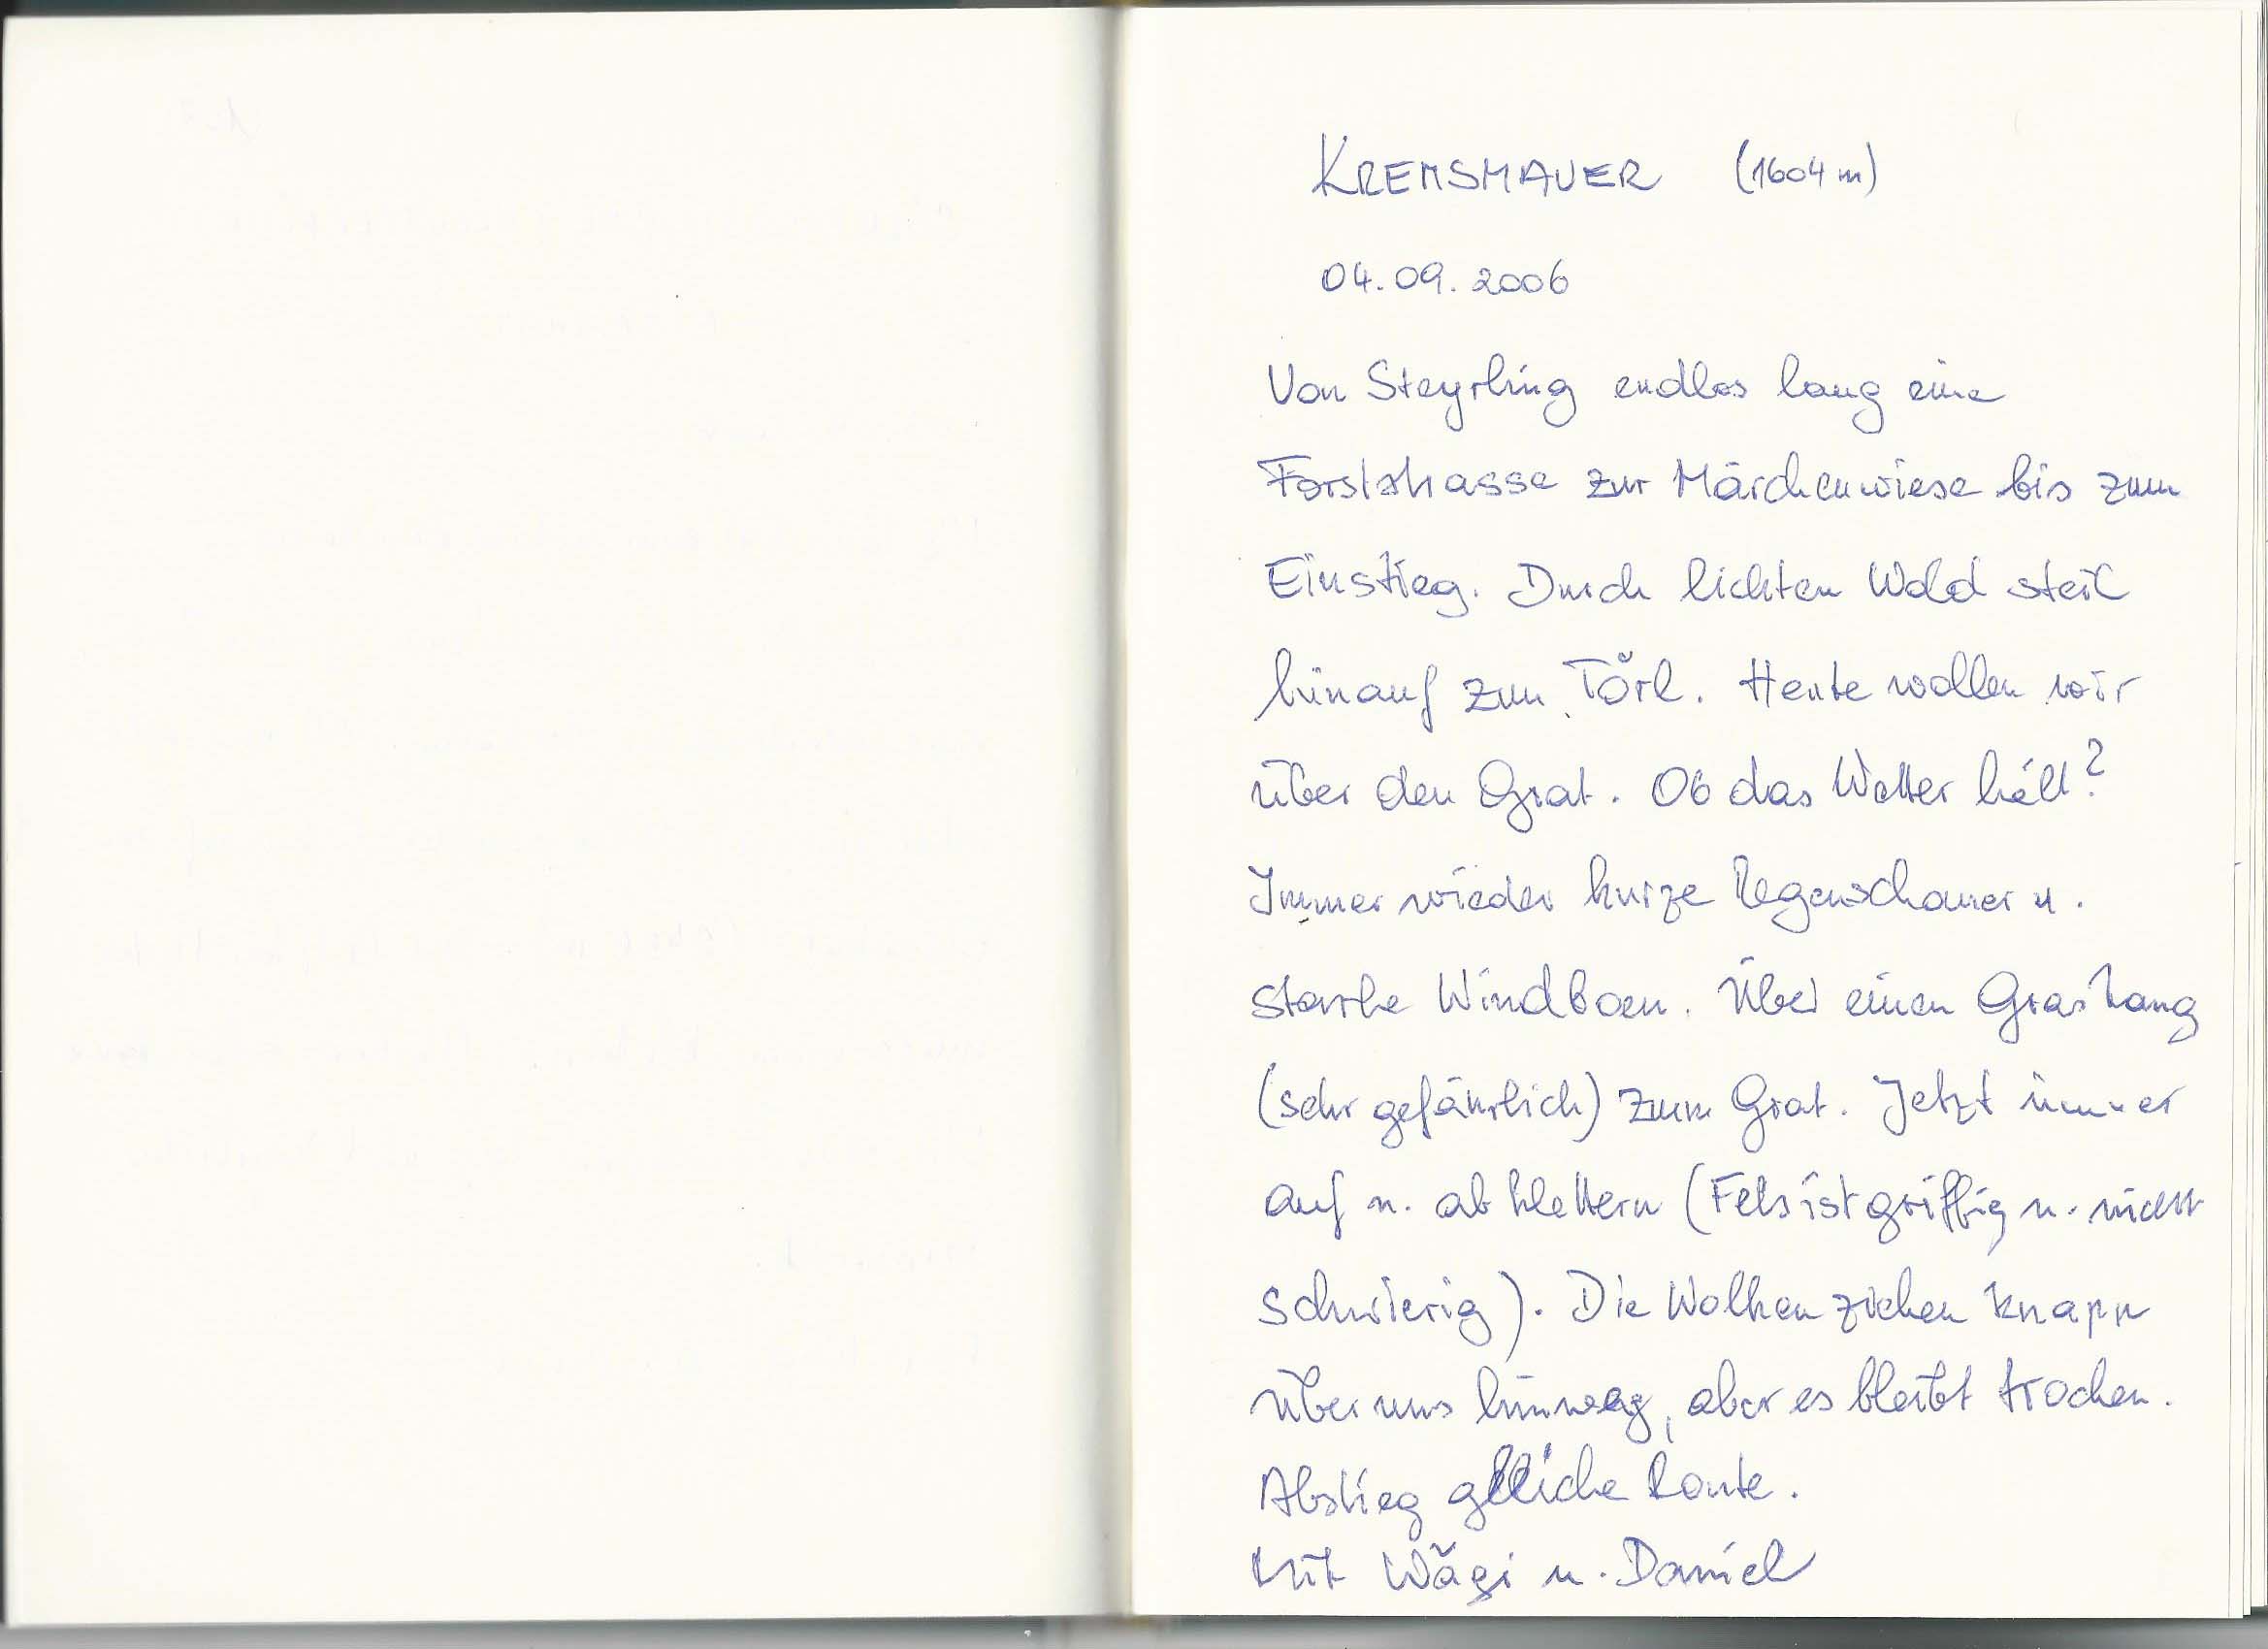 KREMSMAUER (1604 m)
04.09.2006
Von Steyrling endlos lang eine
Forststrasse zur Märchenwiese bis zum
Einstieg. Durch lichten Wald steil
hinauf zum Törl. Heute wollen wir
über den Grat. Ob das Wetter hält?
Immer wieder kurze Regenschauer u.
starke Windboen. Über einen Grashang
(sehr gefährlich) zum Grat. Jetzt immer
auf u. ab klettern (Fels ist griffig u. nicht
schwierig). Die Wolken ziehen knapp
über uns hinweg, aber es bleibt trocken.
Abstieg gleiche Route.
Mit Wägi u. Daniel